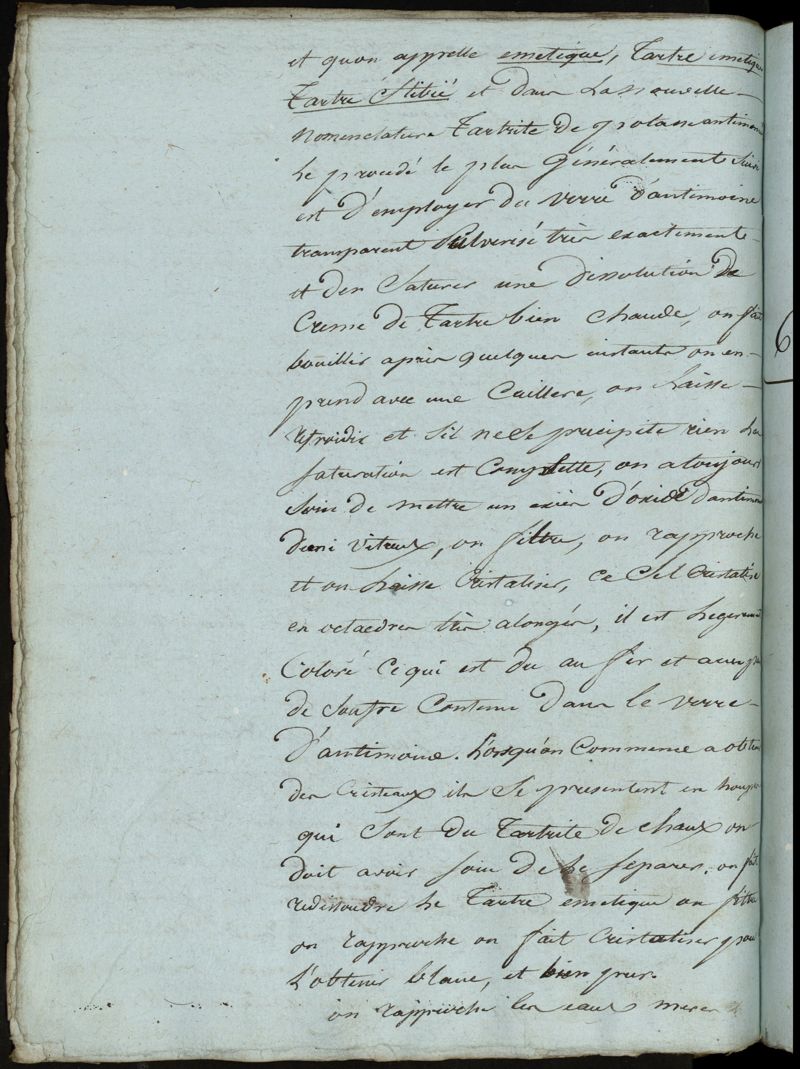 et quon appelle emetique, Tartre emetique
Tartre Stibié et dans La nouvelle
nomenclature Tartrite de potasse antimoni
Le procedé le plus Généralement Suivi
est d'employer du verre d'antimoine
transparent Pulverisé très exactement
et den Saturer une dissolution de
Creme de Tartre bien chaude, on fait
bouillir après quelques instants on en
prend avec une Cuillere, on Laisse
refroidir et Sil ne Se precipite rien La
saturation est Complette, on a toujours
Soin de mettre un exces d'oxide d'antimoi
demi vitreux, on filtre, on rapproche
et on Laisse Cristaliser, ce Sel Cristalise
en octaedres très alongés, il est Legerement
Coloré Ce qui est du au fer et au peu
de Soufre Contenu dans le verre
d'antimoine. Lorsqu'on Commence a obtenir
des Cristeaux ils Se presentent en houpes
qui Sont du Tartrite de chaux on
doit avoir Soin de Le Separer, on fait
redissoudre Le Tartre emetique on filtre
on rapproche on fait Cristaliser pour
L'obtenir blanc, et bien pur.
on rapproche les eaux meres
6